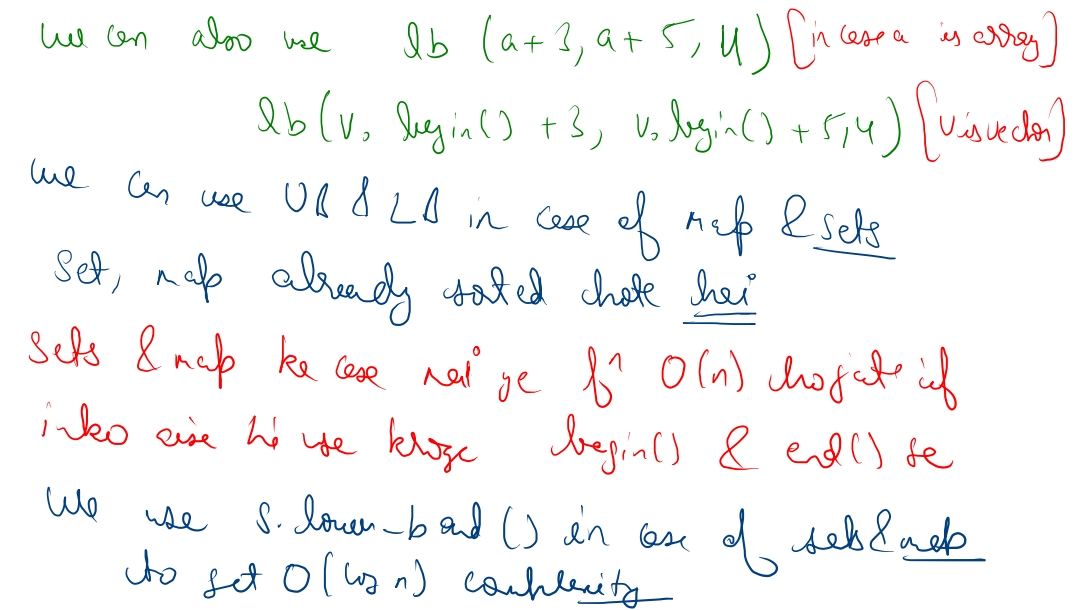 we can also use lb (a+3, a+5, 4) [in case a is array]
lb(v. begin() +3, v. begin() +5,4) [v is vector]
we can use UB & LB in case of map & sets
Set, map already sorted hote hai
Sets & map ke case mai ye fn O(n) hojate if
inko aise hi use kroge begin() & end() se
We use S. lower_bound () in case of sets & map
to get O(log n) complexity